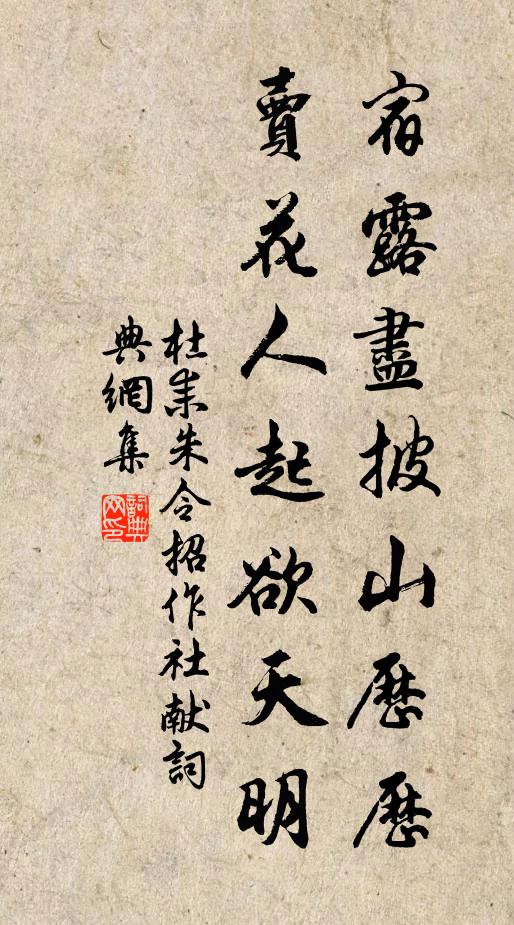 宿露盡披山歷歷
賣花人起欲天明
杜耒朱令招作社献詞
典網集
詞典網印